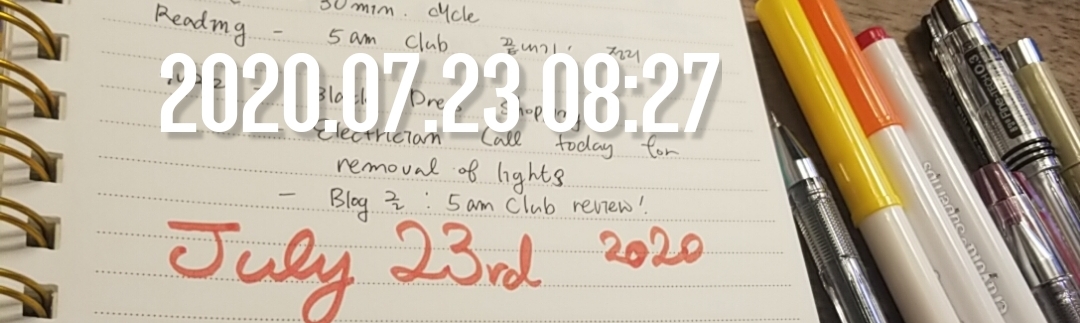 30 min. cycle
Reading - 5 am Club 끝내기! 정리
2020.07.23 08:27
Black Dress Shopping
- Electrician Call today for
removal of lights
- Blog 글 : 5 am Club review!
July 23rd 2020